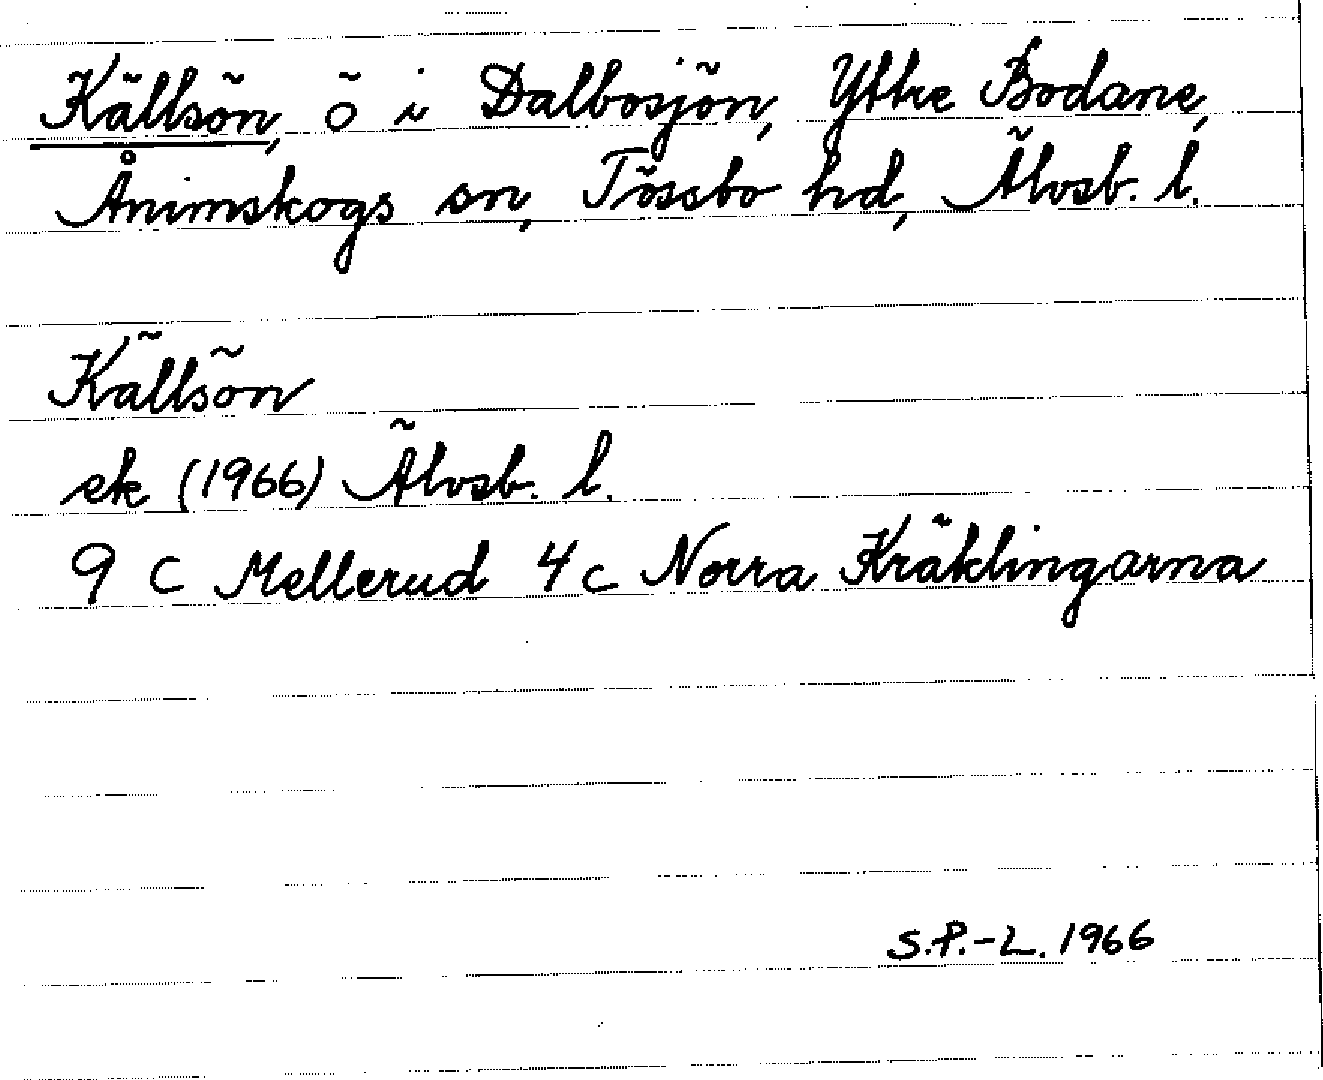 Källsön, ö i Dalbosjön, Yttre Bodane,
Ånimskogs sn, Tössbo hd, Älvsb. l.
Källsön
ek (1966) Älvsb. l.
9 C Mellerud 4 c Norra Kräklingarna
S.P.-L. 1966